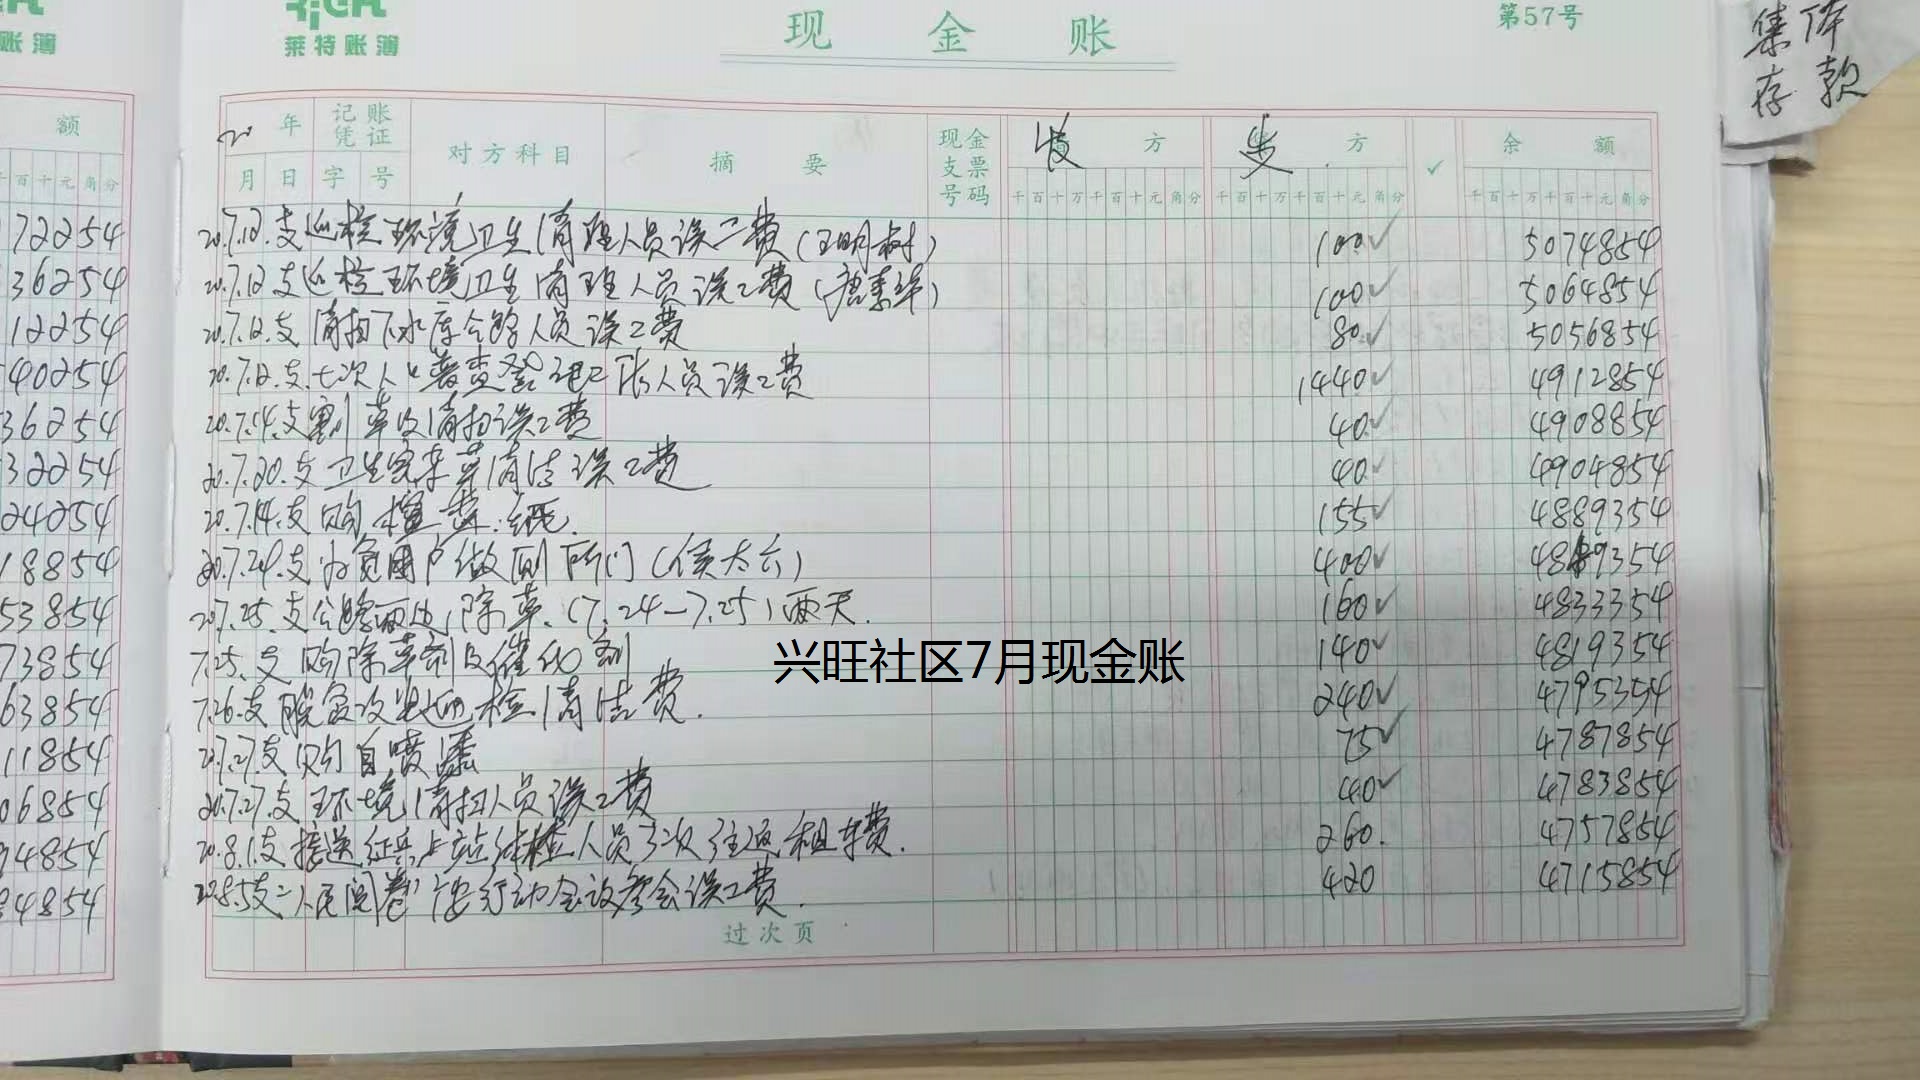 莱特账簿
账簿
现 金 账
第57号
集体
存款
额
20 年 记账凭证 对方科目 摘 要 现金支票号码 收 方 支 方 ✓ 余 额
月 日 字 号 千百十万千百十元角分 千百十万千百十元角分 千百十万千百十元角分
20.7.12.支巡检环境卫生清理人员误工费(王明树) 100 ✓ 5074854
20.7.12支巡检环境卫生清理人员误工费(唐素华) 100 ✓ 5064854
20.7.12.支清扫下水库公路人员误工费 80 ✓ 5056854
20.7.12.支七次人口普查登记工作人员误工费 1440 ✓ 4912854
20.7.14.支割草及清扫误工费 40 ✓ 4908854
20.7.20.支卫生室杂草清洁误工费 40 ✓ 4904854
20.7.14.支购 纸. 155 ✓ 4889354
20.7.24.支 户做厕所门(侯太云) 400 ✓ 4849354
20.7.25.支公路两边除草.(7.24-7.25)两天. 160 ✓ 4833354
7.25.支购除草剂及催化剂 140 ✓ 4819354
7.26.支脱贫攻坚迎检清洁费. 240 ✓ 4795354
20.7.27.支购自喷漆 75 ✓ 4787854
20.7.27.支环境清扫人员误工费 40 ✓ 4783854
20.8.1.支接送征兵上站体检人员3次往返租车费. 260. 4757854
20.8.5支 人民阅卷 行动会议参会误工费. 420 4715854
过次页
兴旺社区7月现金账
72254
36254
12254
40254
36254
32254
24254
18854
53854
73854
63854
11854
06854
94854
84854